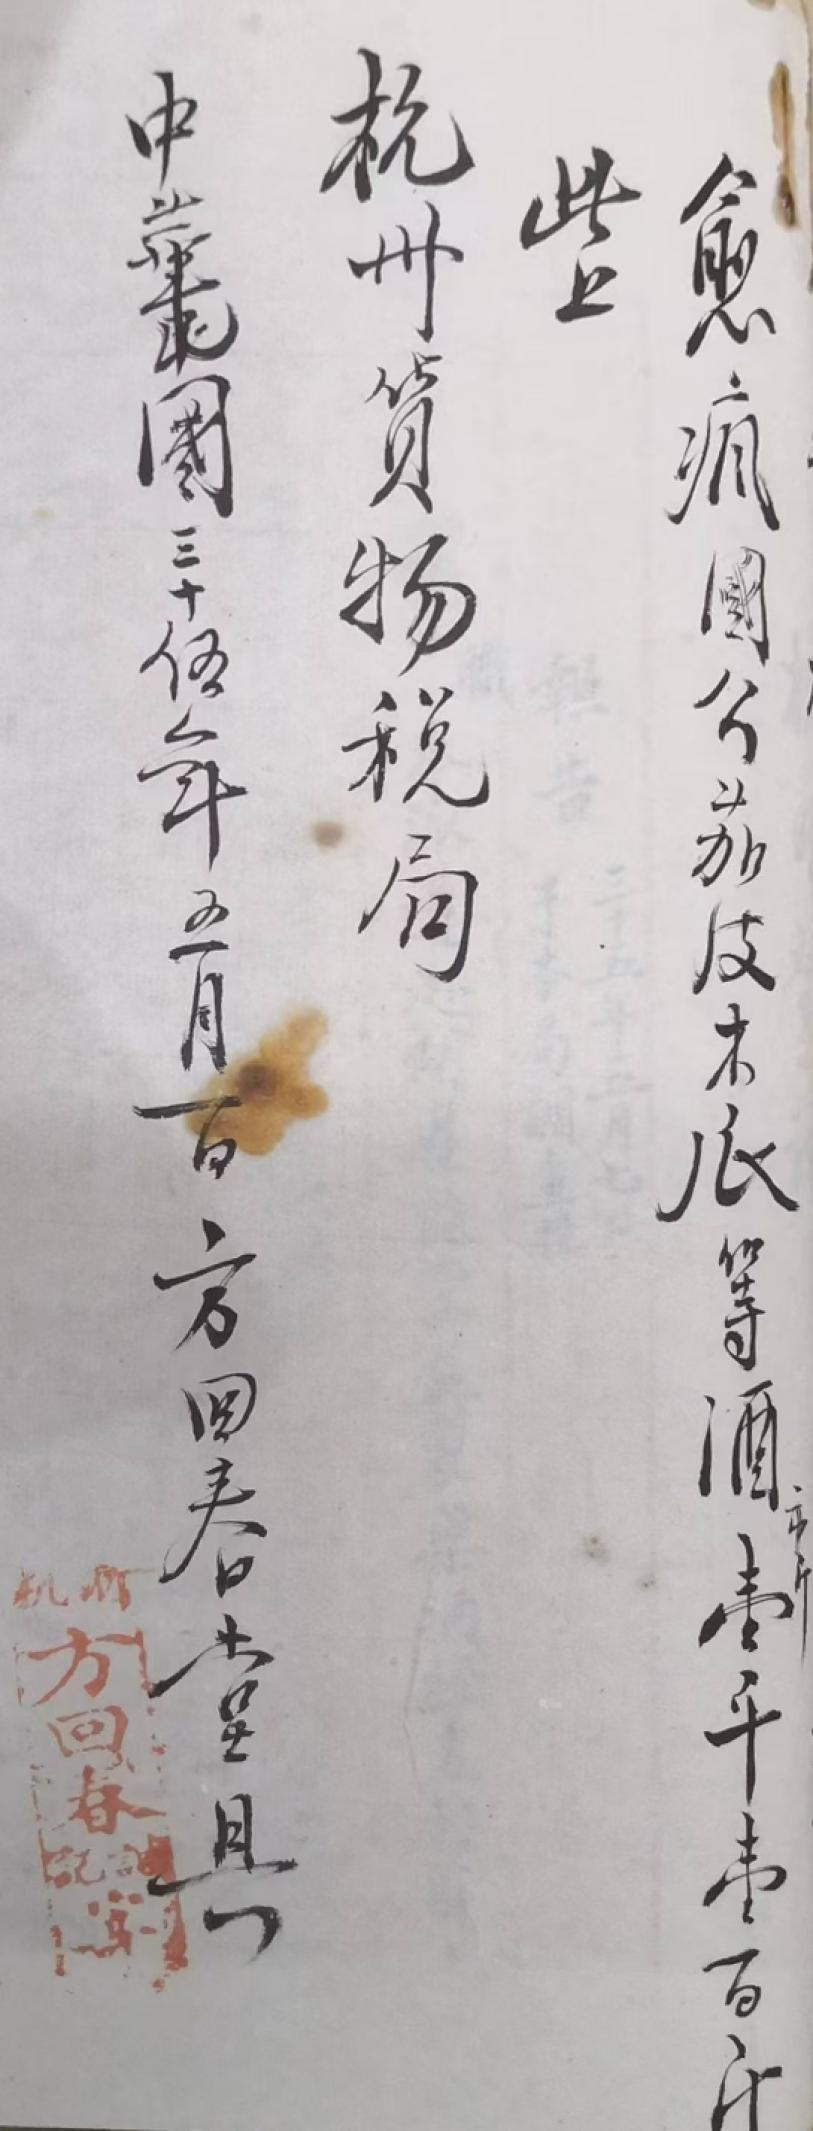 愈瘋國公茄皮木瓜等酒市斤壹千壹百斤
此上
杭州貨物稅局
中華民國三十伍年五月一日方回春堂具
杭
方回春
記